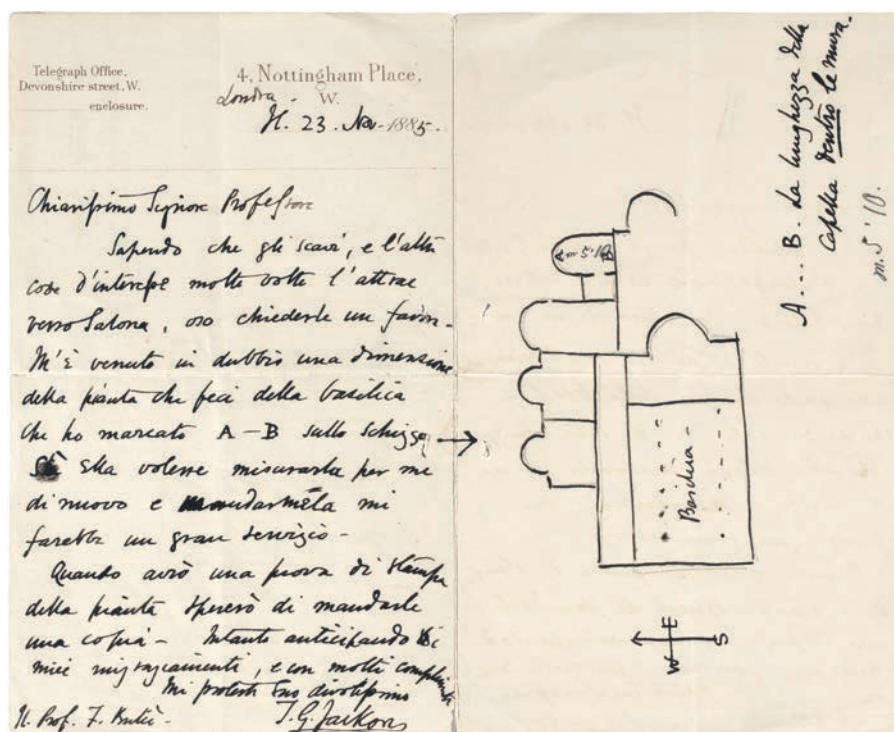 Telegraph Office,
Devonshire street, W.
enclosure.
4, Nottingham Place,
W.
Londra -
Il. 23. Nov. 1885.
Chiarissimo Signore Professore
Sapendo che gli scavi, e l'altre
cose d'interesse molte volte l'attrae
verso Salona, oso chiederle un favore.
M'È venuto in dubbio una dimensione
della pianta che feci della basilica
che ho marcato A - B sullo schizzo
Se Ella volesse misurarla per me
di nuovo e mandarmela mi
farebbe un gran servizio -
Quando avrò una prova di stampa
della pianta spererò di mandarle
una copia - Intanto anticipando i
miei ringraziamenti, e con molti complimenti
Mi protesto suo divotissimo
Il. Prof. F. Bulić -
T. G. Jackson
A .... B. La lunghezza della
Capella dentro le mura.
m. 5'10.
A m 5'10 B
Basilica -
E
W
S